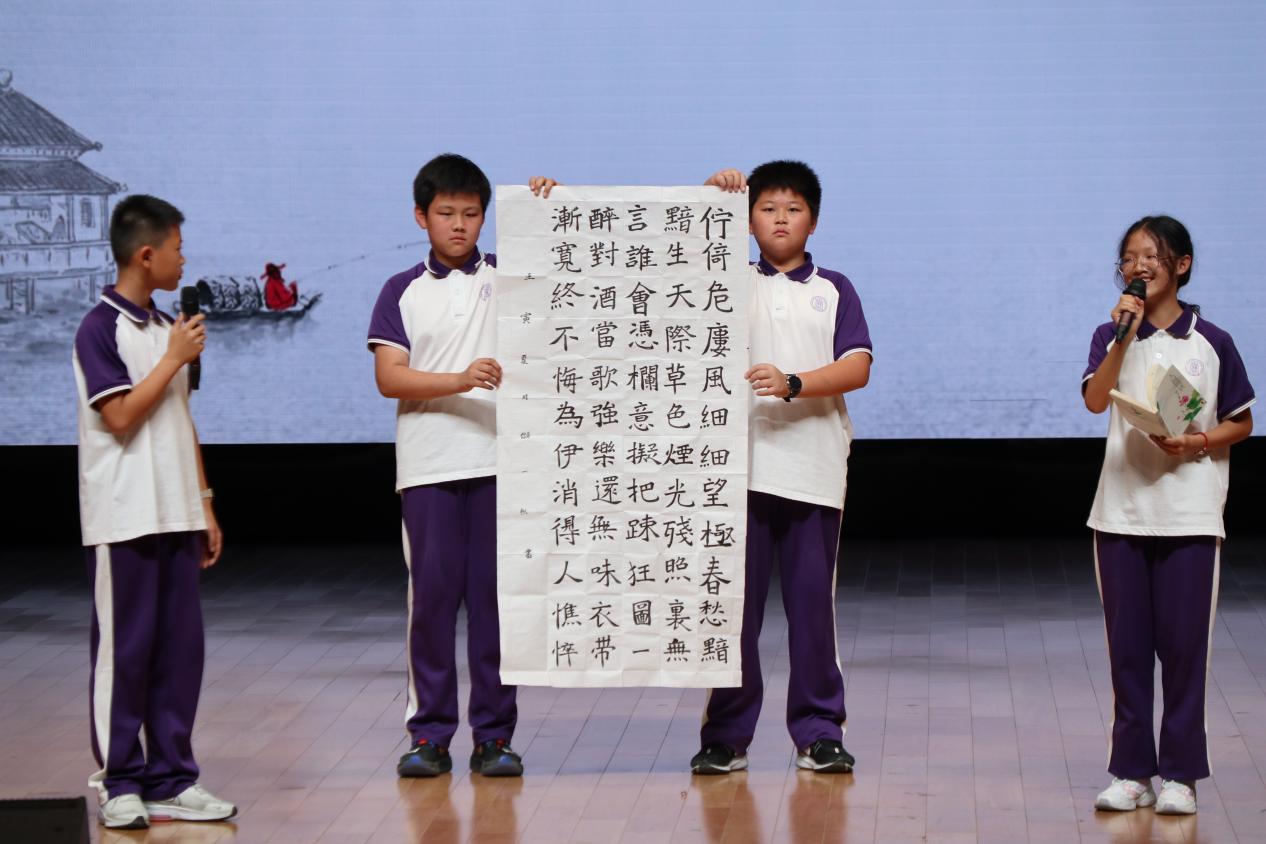 佇倚危廔風細細望極春愁黯
黯生天際草色煙光殘照裏無
言誰會憑欄意擬把踈狂圖一
醉對酒當歌強樂還無味衣帶
漸寬終不悔為伊消得人憔悴
壬寅夏月書